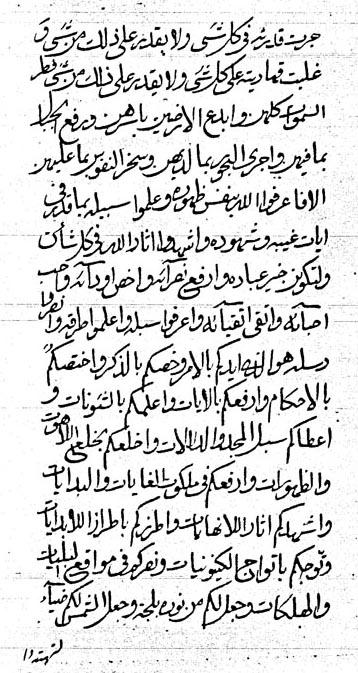 جرت قدرته فی کل شیء ولا یقدر علی ذلک من شیء و
غلبت قهاریته علی کل شیء ولا یقدر علی ذلک من شیء فطر
السموات کلهن وابدع الارضین باهرن ورفع
بما فیهن واجری البحور بما لدیهن وسخر النفوس بما علیهن
الا فاعرفوا الله بنفس ظهوره وعلموا سبیله بما قدر فی
ایات غیبه وشهوده واشهدوا اثار الله فی کل شأن
ولتکونن خیر عباده وارفع نقرائه واخص اودائه واحب
احبائه واتقی اتقیائه واعرفوا سبله واعلموا طرائقه
رسله هو الله ایدکم بالامر وخصکم بالذکر واختصکم
بالاحکام وارفعکم بالایات واعلمکم بالشئونات و
اعطاکم سبل المجد والدلالات واخلعکم بخلع
والظهورات وارفعکم فی ملکوت الغایات والبدایات
واشهدکم اثار اللانهایات واطرزکم باطراز اللابدایات
وتوجکم باتواج الکینونیات فی مواقع
والهلکات وجعل لکم من نوره بلمحة وجعل الشمس لکم ضیآء